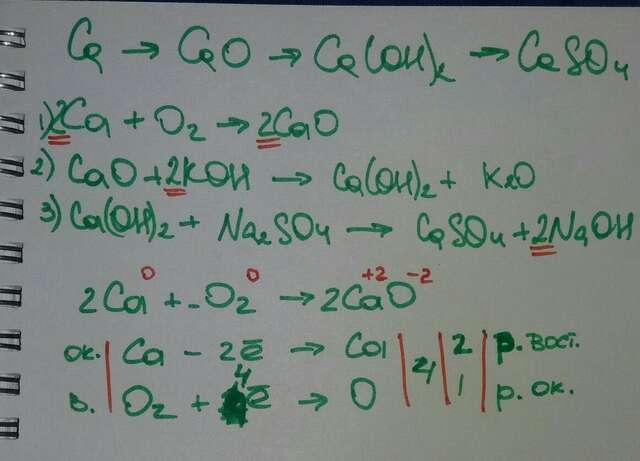 Ca → CaO → Ca(OH)₂ → CaSO₄
1) 2Ca + O₂ → 2CaO
2) CaO + 2KOH → Ca(OH)₂ + K₂O
3) Ca(OH)₂ + Na₂SO₄ → CaSO₄ + 2NaOH
2Ca⁰ + O₂⁰ → 2Ca⁺²O⁻²
ок. | Ca - 2ē → Ca | 4 | 2 | р. вост.
в. | O₂ + 4ē → O | 1 | р. ок.